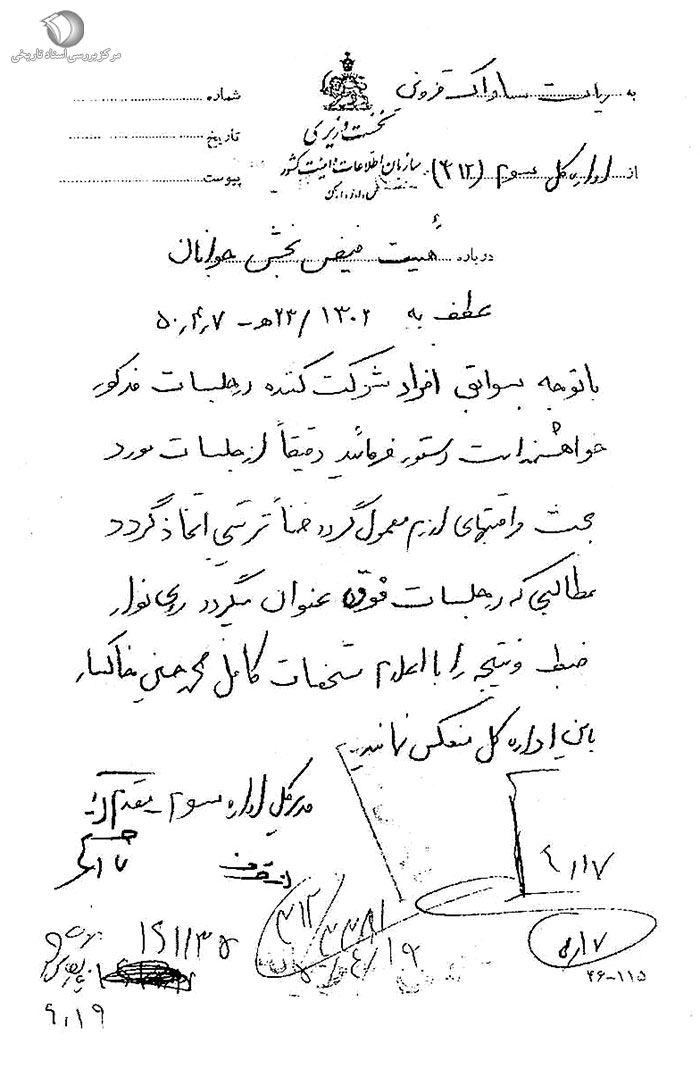 مرکز بررسی اسناد تاریخی
به ریاست ساواک قزوین
شماره
نخست وزیری
تاریخ
سازمان اطلاعات و امنیت کشور
از اداره کل سوم (۳۱۲)
پیوست
س.ا.و.ا.ک
درباره هیئت فیض بخش جوانان
عطف به ۱۳۰۲ /۲۳هـ - ۵۰٫۴٫۷
باتوجه بسوابق افراد شرکت کننده در جلسات مذکور
خواهشمند است دستور فرمائید دقیقاً از جلسات مورد
بحث مراقبتهای لازم معمول گردد ضمناً ترتیبی اتخاذ گردد
مطالبی که در جلسات فوق عنوان میگردد روی نوار
ضبط و نتیجه را با اعلام مشخصات کامل محمد حسنی خاکسار
باین اداره کل منعکس نمایند
مدیرکل اداره سوم مقدم
از طرف
۴٫۱۷
۳۱۲
۱۹۱۱۳۵
۵۰/۴/۱۹
۱۷
۴۶-۱۱۵
۴٫۱۹